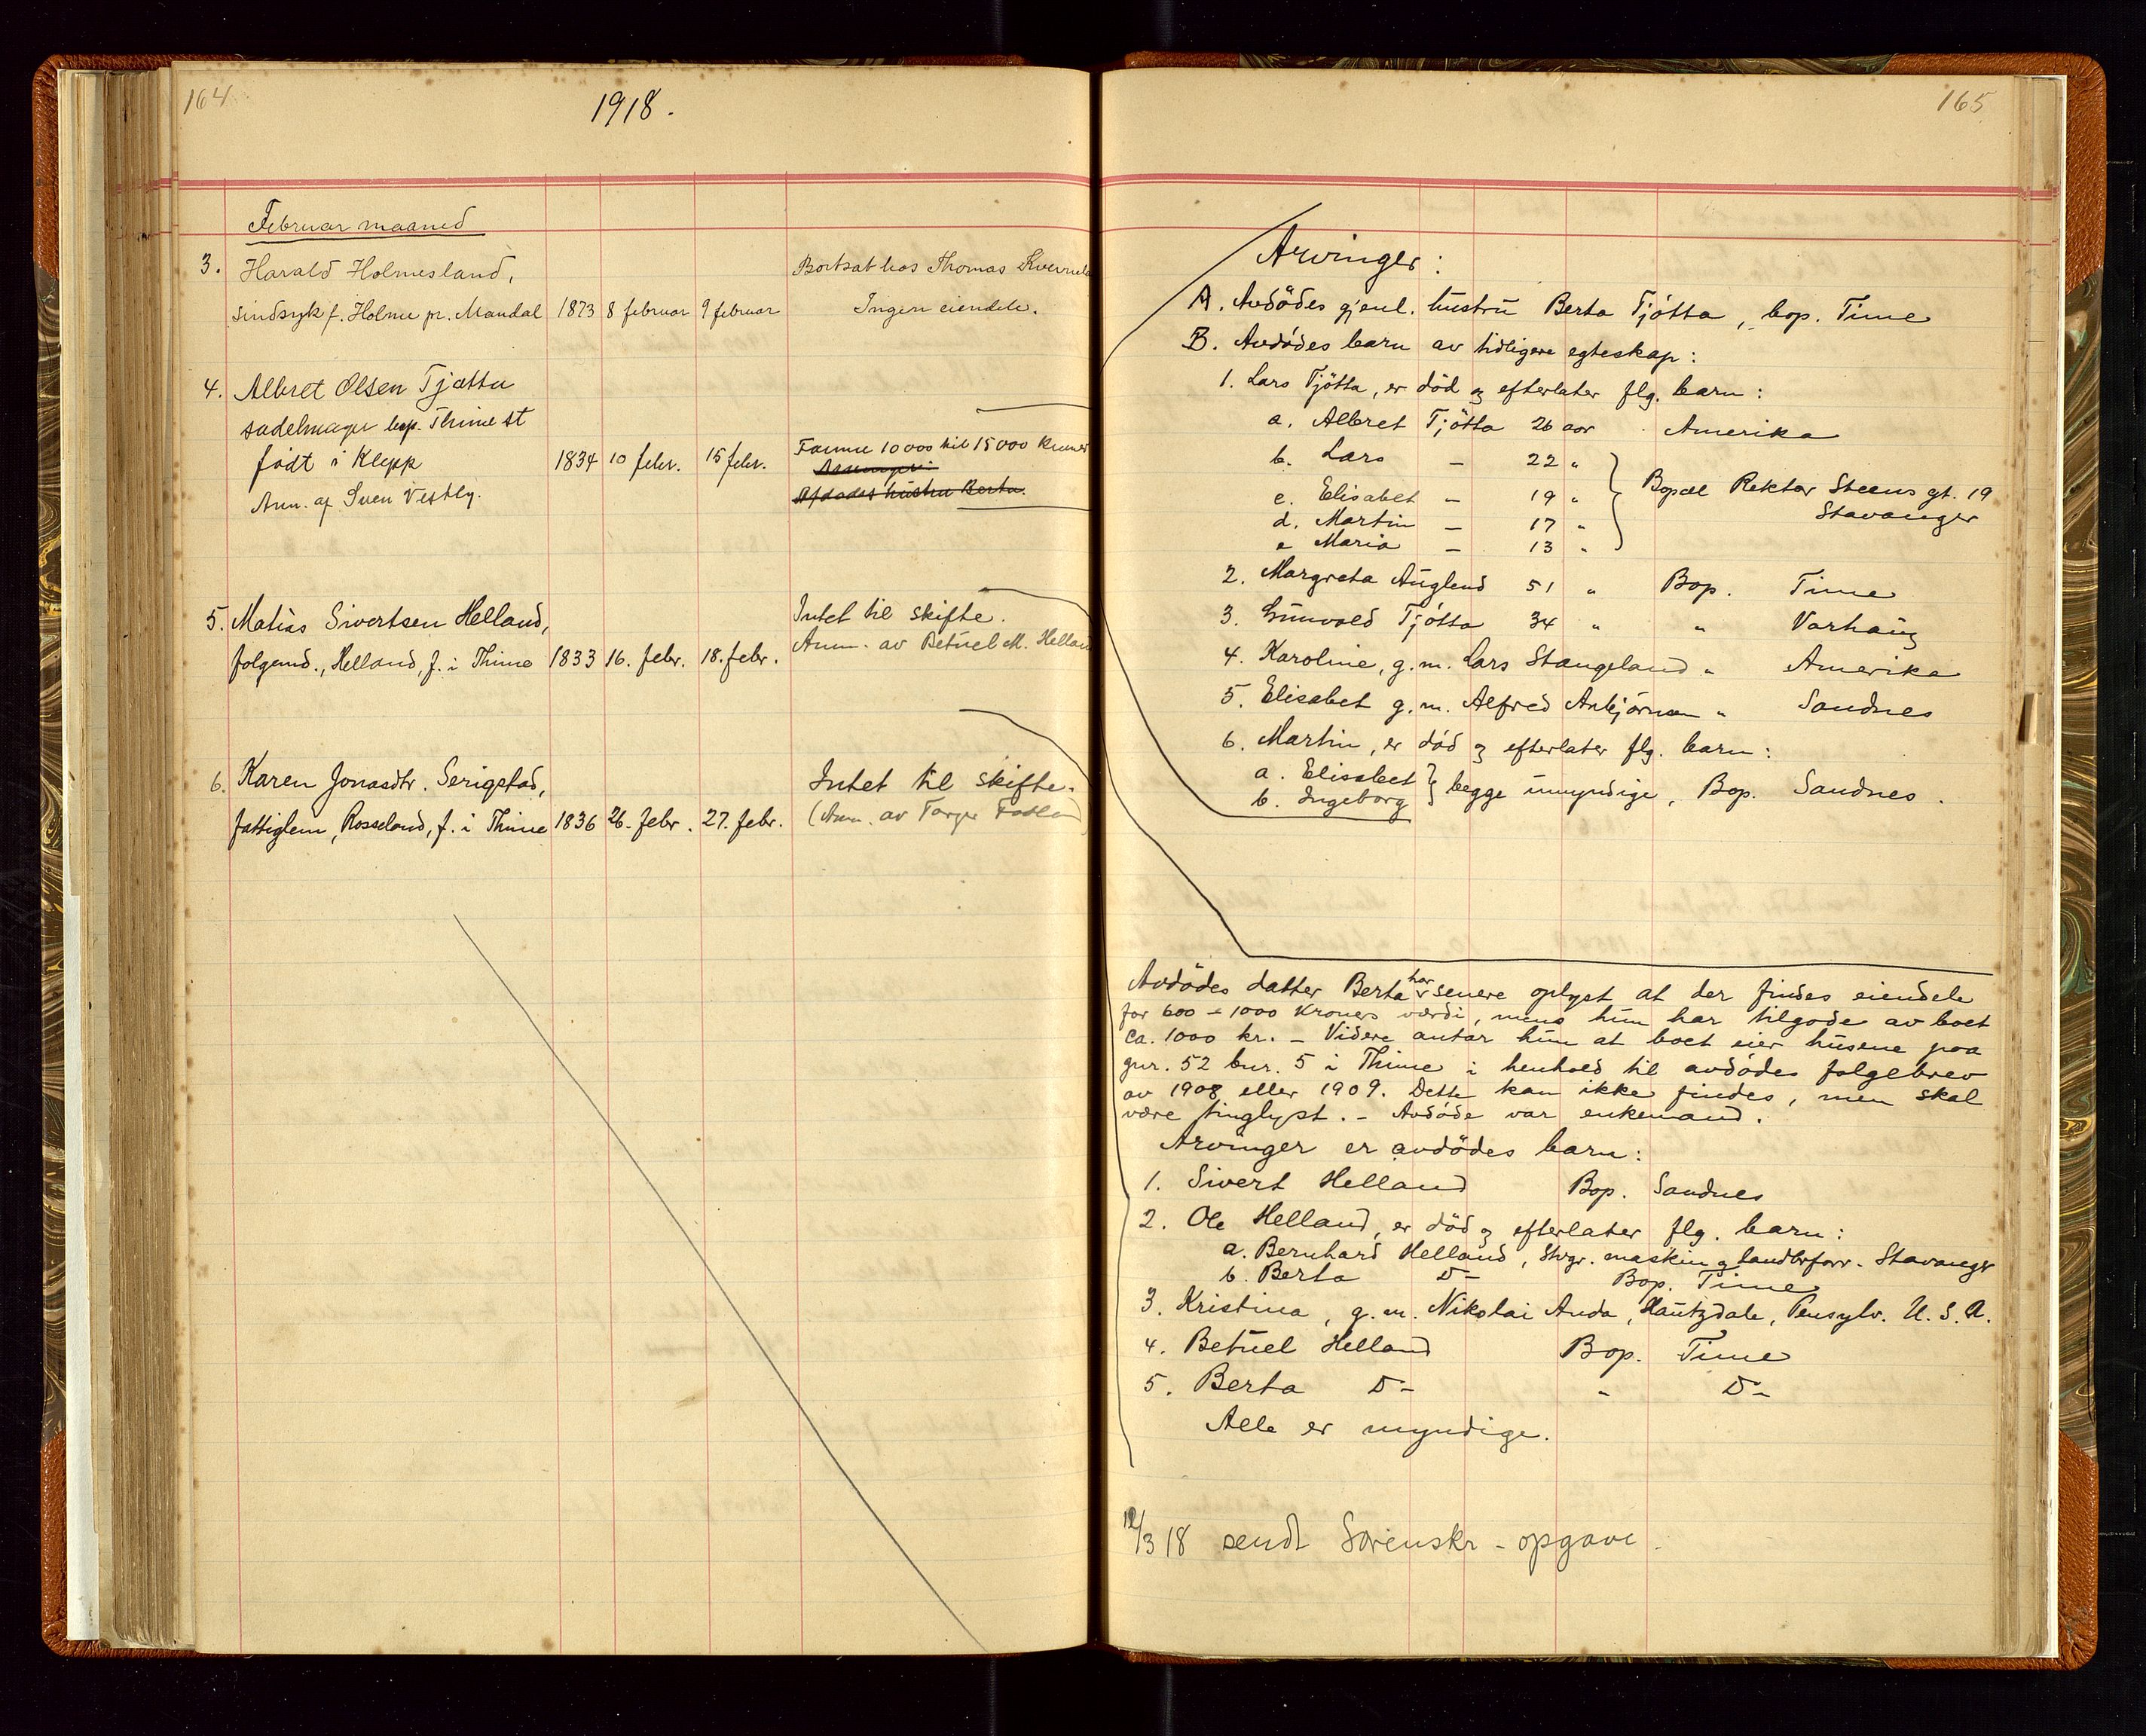 164
1918.
Februar maaned
3. Harald Holmesland, Bortsat hos Thomas
sindsyk f. Holme pr. Mandal 1873 8 februar 9 februar Ingen eiendele.
4. Albret Olsen Tjøtta
sadelmager bop. Thime st
født i Klepp 1834 10 febr. 15 febr. Formue 10000 til 15000 kroner
Arvinger:
Afdødes hustru Berta.
Anm. af Sven Vestly.
5. Matias Sivertsen Helland, Intet til skifte.
folgemd., Helland, f. i Thime 1833 16. febr. 18. febr. Anm. av Betuel M. Helland
6. Karen Jonasdtr. Serigstad, Intet til skifte.
fattiglem, Rosseland, f. i Thime 1836 26. febr. 27. febr. (Anm. av Torger
165
Arvinger:
A. Avdødes gjenl. hustru Berta Tjøtta, bop. Time
B. Avdødes barn av tidligere egteskap:
1. Lars Tjøtta, er død og efterlater flg. barn:
a. Albret Tjøtta 26 aar Amerika
b. Lars — 22 "
c. Elisabet — 19 " Bopæl Rektor Steens gt. 19
Stavanger
d. Martin — 17 "
e Maria — 13 "
2. Margreta Auglend 51 " Bop. Time
3. Gunvald Tjøtta 34 " " Varhaug
4. Karoline, g.m. Lars Stangeland " Amerika
5. Elisabet g.m. Alfred Asbjørnsen " Sandnes
6. Martin, er død og efterlater flg. barn:
a. Elisabet
b. Ingeborg } begge umyndige, Bop. Sandnes.
Avdødes datter Berta har senere oplyst at der findes eiendele
for 600 - 1000 kroners værdi, mens hun har tilgode av boet
ca. 1000 kr. - Videre antar hun at boet eier husene paa
gnr. 52 bnr. 5 i Thime i henhold til avdødes folgebrev
av 1908 eller 1909. Dette kan ikke findes, men skal
være tinglyst. - Avdøde var enkemand.
Arvinger er avdødes barn:
1. Sivert Helland Bop. Sandnes
2. Ole Helland, er død og efterlater flg. barn:
a. Bernhard Helland, Stvgr. maskin og Stavanger
b. Berta D- Bop. Time
3. Kristina, g.m. Nikolai Anda, Hautzdale, Pensylv. U.S.A.
4. Betuel Helland Bop. Time
5. Berta D- " D-
Alle er myndige.
12/3 18 sendt Sorenskr - opgave.